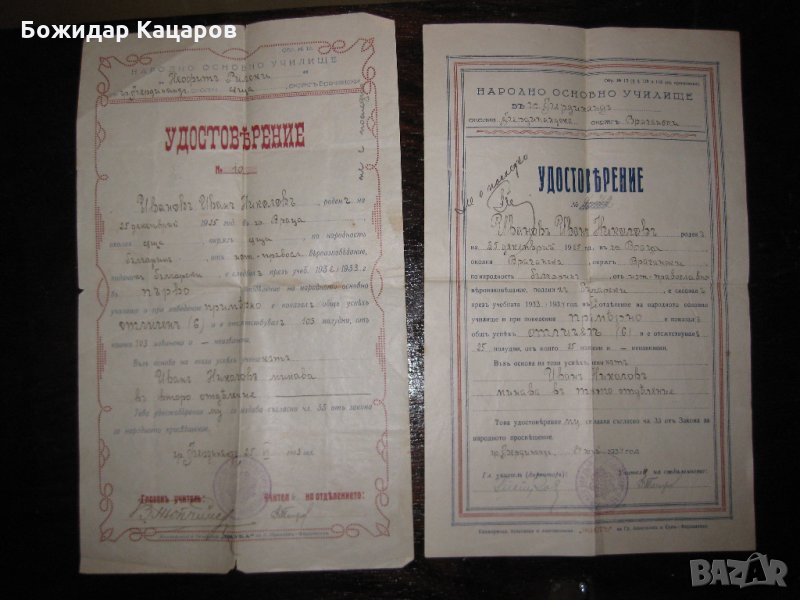 Божидар Кацаров
Обр. № 15
НАРОДНО ОСНОВНО УЧИЛИЩЕ
„Неофитъ Рилски“
гр. Фердинандъ околия сѫща окрѫгъ Врачански
УДОСТОВѢРЕНИЕ
№ 10
не е последно
Ивановъ Иванъ Николовъ, роденъ на
25 декемврий 1925 год. въ гр. Враца
околия сѫща окрѫгъ сѫща, по народность
българинъ, отъ изт. правосл. вѣроизповѣдание,
български е следвал през учеб. 1932/1933 г.
първо отдѣление на народното основно
училище и при поведение примѣрно е показалъ общъ успѣхъ
отличенъ (6) и е отсѫтствувалъ 103 полудни, отъ
които 103 извинени и — неизвинени.
Въ основа на този успѣхъ ученикътъ
Иванъ Николовъ минава
въ второ отдѣление
Това удостовѣрение му се издава съгласно чл. 55 отъ закона
за народното просвѣщение.
гр. Фердинандъ
Главенъ учитель: Учител на отдѣлението:
НАРОДНО ОСНОВНО УЧИЛИЩЕ
въ гр. Фердинандъ
околия Фердинандска окрѫгъ Врачански
не е последно
УДОСТОВѢРЕНИЕ
№
Ивановъ Иванъ Николовъ роденъ
на 25 декемврий 1925 год. въ гр. Враца
околия Врачанска, окрѫгъ Врачански
по народность българинъ, отъ изт. православно
вѣроизповѣдание, е следвалъ
презъ учебната 1933/1934 год. въ II отдѣление на народното основно
училище и при поведение примѣрно е показалъ
общъ успѣхъ отличенъ (6) и е отсѫтствувалъ
25 полудни, отъ които 25 извинени и — неизвинени.
Въ основа на този успѣхъ ученикътъ
Иванъ Николовъ
минава въ трето отдѣление
Това удостовѣрение му се издава съгласно чл. 55 отъ Закона за
народното просвѣщение.
гр. Фердинандъ
Гл. учитель (директоръ): Учитель на отдѣлението:
BAZAR